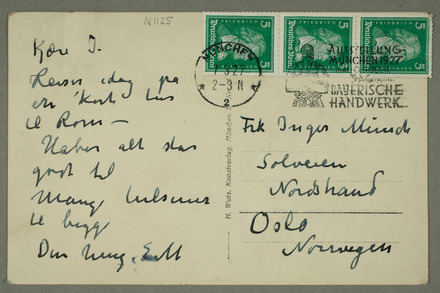 N 1125
Kære I.
Reiser idag på
en kort
til Rom –
Haber alt står
godt til
Mange hilsener
til begge
Din
FRIEDRICH
5 5
Deutsches Reich
FRIEDRICH
5 5
Deutsches Reich
FRIEDRICH
5 5
Deutsches Reich
MÜNCHEN
2-3 N
2
AUSSTELLUNG
MÜNCHEN 1927
BAYERISCHE
HANDWERK
H. Wutz, Kunstverlag, München
Frk Inger Munch
Solveien
Nordstrand
Oslo
Norwegen